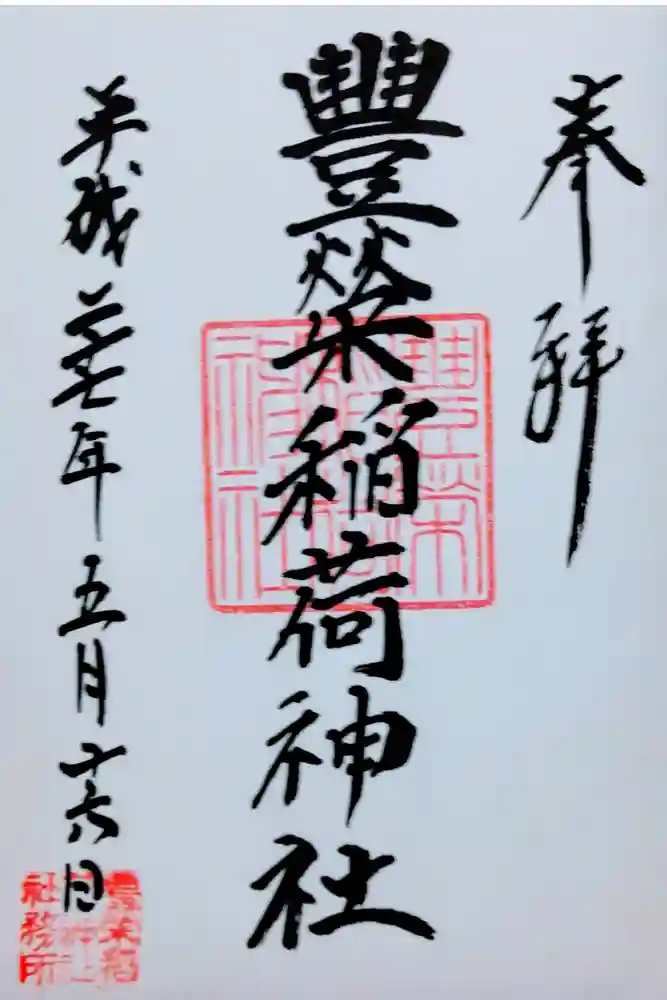 奉拝
豐榮稲荷神社
平成二十七年五月十六日
豊栄稲荷神社社務所